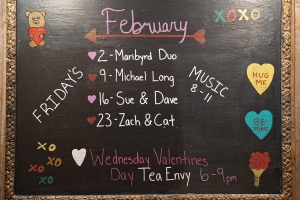 February
XOXO
FRIDAY'S
2 - Maribyrd Duo
9 - Michael Long
16 - Sue & Dave
23 - Zach & Cat
MUSIC
8-11
HUG
ME
BE
MINE
XO
XO
XO
Wednesday Valentines
Day Tea Envy 6-9pm